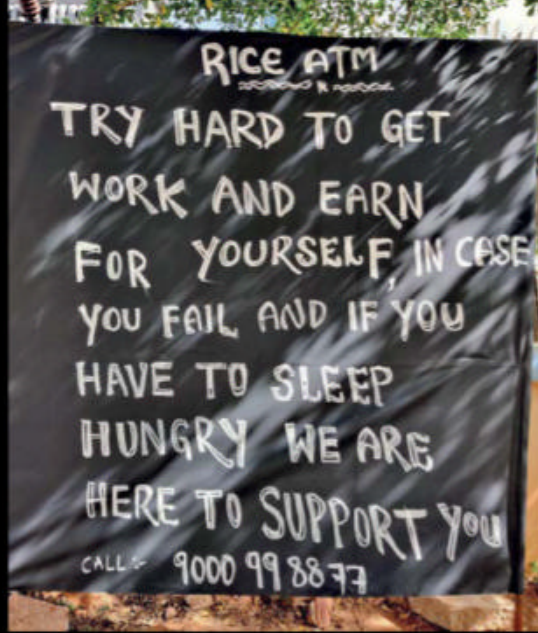 RICE ATM
TRY HARD TO GET
WORK AND EARN
FOR YOURSELF, IN CASE
YOU FAIL AND IF YOU
HAVE TO SLEEP
HUNGRY WE ARE
HERE TO SUPPORT YOU
CALL:- 9000 99 8877